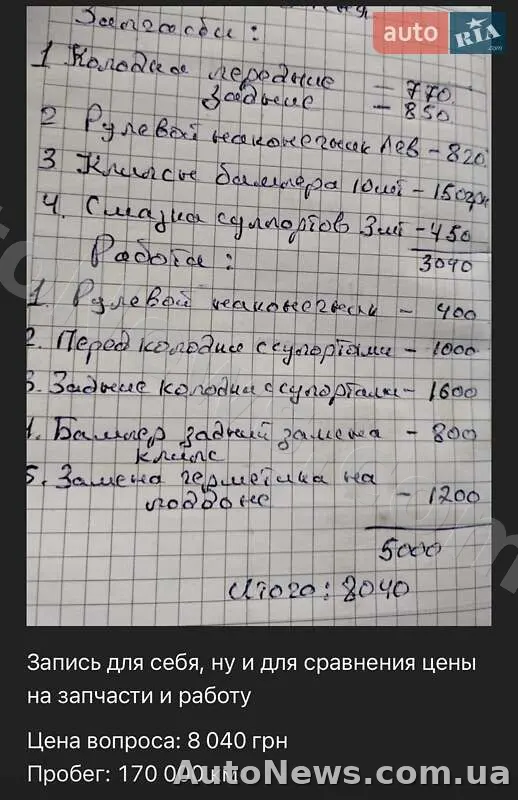 Запчасти:
auto RIA.com
1 Колодки передние – 770
задние – 850
2 Рулевой наконечник лев – 820
3 Клипсы бампера 10шт – 150грн
4. Смазка суппортов 3шт – 450
3040
Работа:
1. Рулевой наконечники – 400
2. Перед колодки с супортами – 1000
3. Задние колодки с супортами – 1600
4. Бампер задний замена – 800
клипс
5. Замена герметика на
поддоне – 1200
5000
Итого: 8040
Запись для себя, ну и для сравнения цены
на запчасти и работу
Цена вопроса: 8 040 грн
Пробег: 170 000 км
AutoNews.com.ua